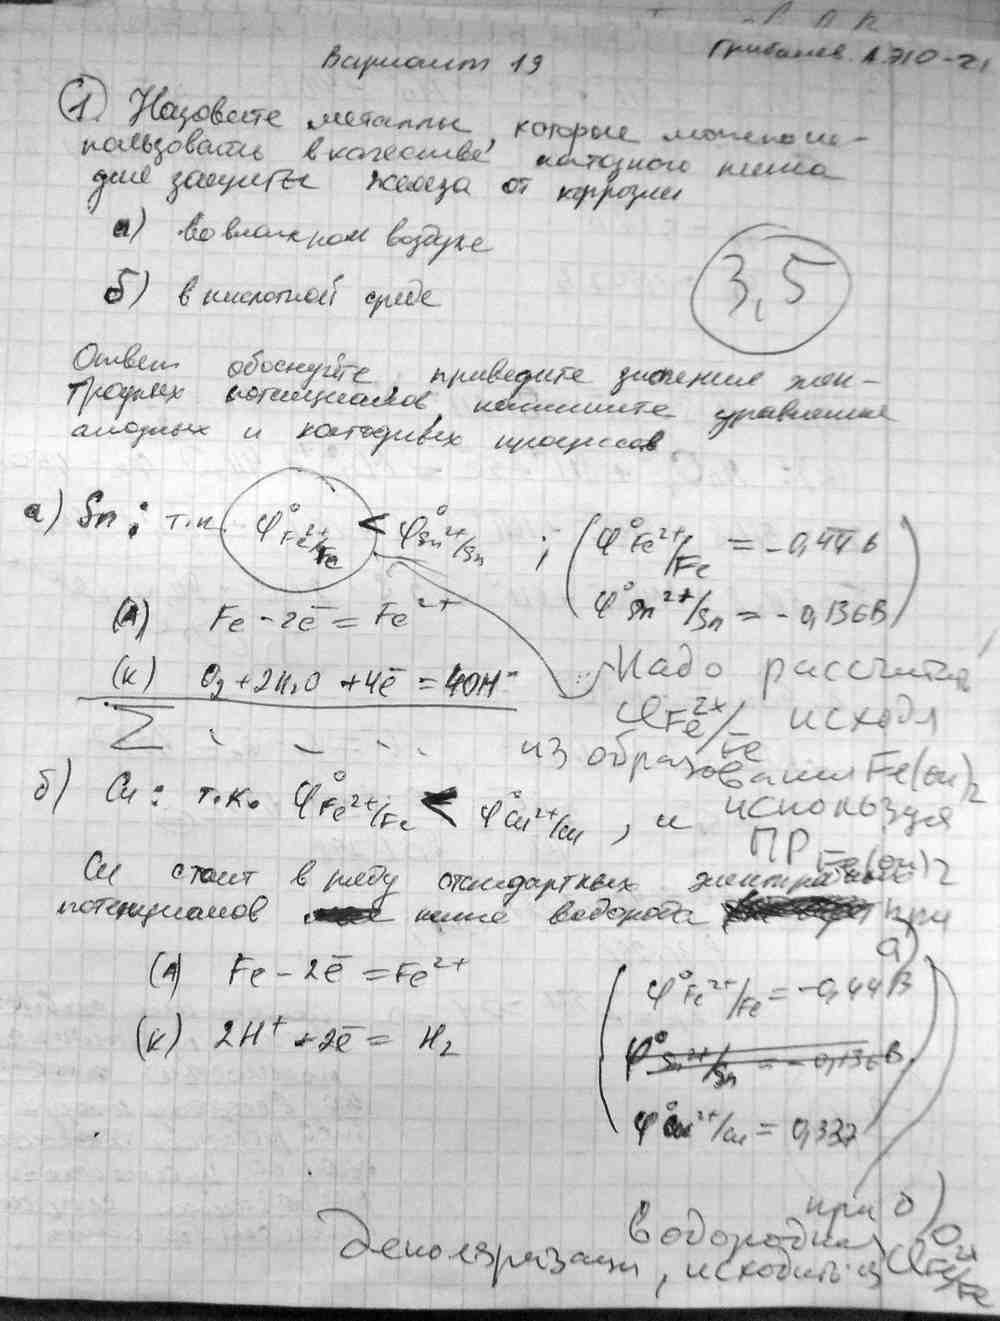 Вариант 19
Грибанев. А. ЭЮ-21
① Назовите металлы, которые можно ис-
пользовать в качестве катодного типа
для защиты железа от коррозии
а) во влажном воздухе
б) в кислотной среде
3,5
Ответ обоснуйте, приведите значения элек-
тродных потенциалов, напишите уравнения
анодных и катодных процессов
а) Sn : т.к. φ° Fe²⁺/Fe < φ° Sn²⁺/Sn ; ( φ° Fe²⁺/Fe = -0,44 В
φ° Sn²⁺/Sn = -0,136В )
(А) Fe - 2ē = Fe²⁺
(К) O₂ + 2H₂O + 4ē = 4OH⁻
Надо рассчитать
φ Fe²⁺/Fe исходя
из образования Fe(OH)₂
используя
ПР Fe(OH)₂
Σ
б) Cu : т.к. φ° Fe²⁺/Fe < φ° Cu²⁺/Cu , и
Cu стоит в ряду стандартных электродных
потенциалов ниже водорода
при а)
(А) Fe - 2ē = Fe²⁺
(К) 2H⁺ + 2ē = H₂
( φ° Fe²⁺/Fe = -0,44В
φ° Sn²⁺/Sn = -0,136В
φ° Cu²⁺/Cu = 0,337 )
при б)
водородная
деполяризация, исходить из φ° Fe²⁺/Fe